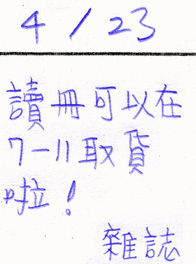 4/23
讀冊可以在
7-11取貨
啦!
雜誌